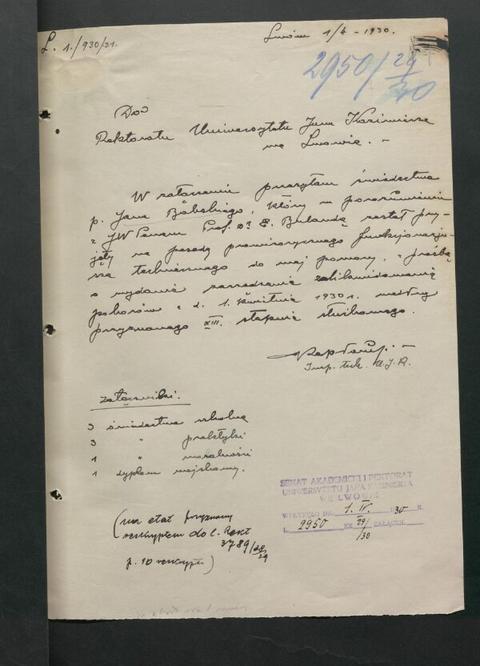 L. 1./930/31.
Lwów 1/4 - 1930.
2950/29/30
Do
Rektoratu Uniwersytetu Jana Kazimierza
we Lwowie. -
W załączeniu przesyłam świadectwa
p. Jana Bąbelskiego, który w porozumieniu
z JW Panem Prof. Dr E. Bulandą został przy-
jęty na posadę prowizorycznego funkcjonarju-
sza technicznego do mej pomocy, z prośbą
o wydanie zarządzenia zalikwidowania
poborów z d. 1. kwietnia 1930 r. według
przyznanego XIII. stopnia służbowego.
Insp. tech. U.J.K.
załączniki:
3 świadectwa szkolne
3 " praktyki
1 " moralności
1 dyplom wojskowy.
(na etat przyznany
reskryptem do l. Rekt
3789/28/29
p. 10 reskryptu)
SENAT AKADEMICKI I REKTORAT
UNIWERSYTETU JANA KAZIMIERZA
WE LWOWIE
WPŁYNĘŁO DN. 1. IV. 1930 R.
L. 2950 EX 29/30 ZAŁĄCZN.